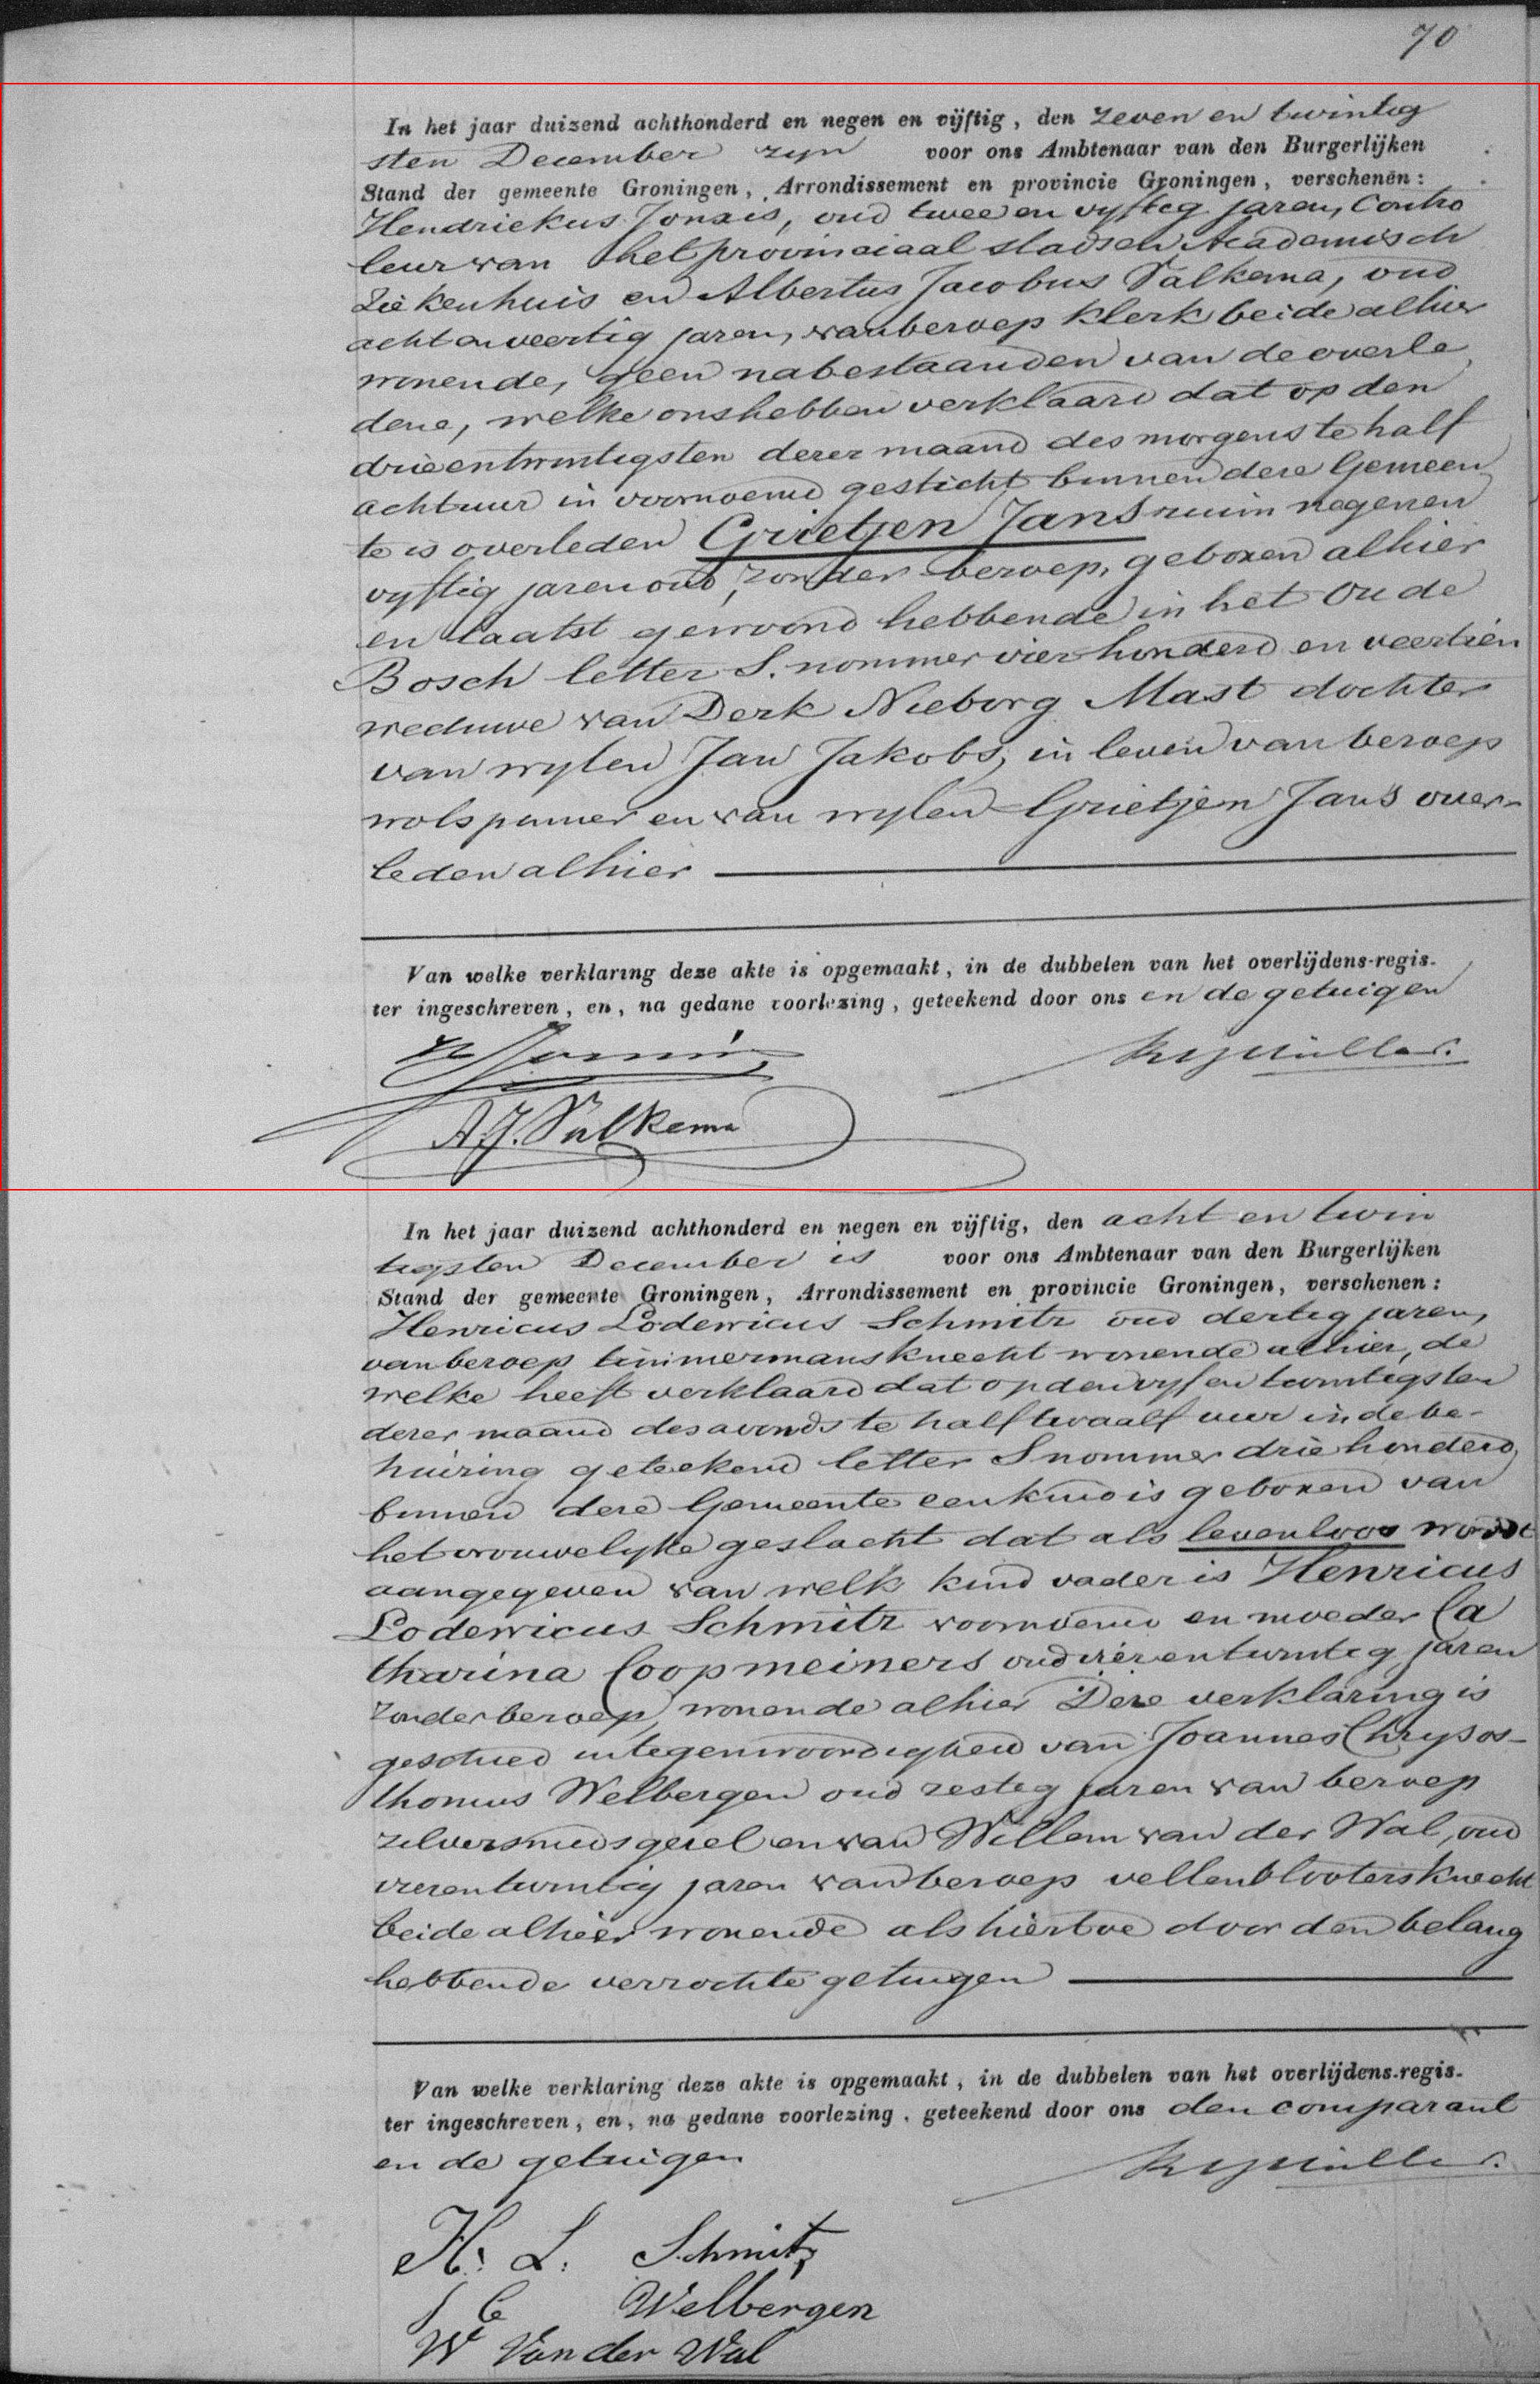 70
In het jaar duizend achthonderd en negen en vijftig, den zeven en twintig
sten December zyn voor ons Ambtenaar van den Burgerlijken
Stand der gemeente Groningen, Arrondissement en provincie Groningen, verschenen:
Hendriekus Jonxis, oud twee en vyftig jaren, Contro
leur van het provinciaal stadsch Academisch
Ziekenhuis en Albertus Jacobus Valkema, oud
acht en veertig jaren, van beroep klerk beide alhier
wonende, geen nabestaanden van de overle
dene, welke ons hebben verklaard dat op den
drieentwintigsten dezer maand des morgens te half
acht uur in voornoemd gesticht binnen deze Gemeen
te is overleden Grietjen Jans ruim negenen
vyftig jaren oud, zonder beroep, geboren alhier
en laatst gewoond hebbende in het Oude
Bosch letter S. nommer vierhonderd en veertien
weduwe van Derk Nieborg Mast dochter
van wylen Jan Jakobs, in leven van beroep
wolspinner en van wylen Grietjen Jans over-
leden alhier
Van welke verklaring deze akte is opgemaakt, in de dubbelen van het overlijdens-regis-
ter ingeschreven, en, na gedane voorlezing, geteekend door ons en de getuigen
A. J. Valkema
In het jaar duizend achthonderd en negen en vijftig, den acht en twin
tigsten December is voor ons Ambtenaar van den Burgerlijken
Stand der gemeente Groningen, Arrondissement en provincie Groningen, verschenen:
Henricus Lodewicus Schmitz oud dertig jaren,
van beroep timmermansknecht wonende alhier, de
welke heeft verklaard dat op den vyf en twintigsten
dezer maand des avonds te half twaalf uur in de be-
huizing geteekend letter S nommer driehonderd
binnen deze Gemeente een kind is geboren van
het vrouwelyke geslacht dat als levenloos wordt
aangegeven van welk kind vader is Henricus
Lodewicus Schmitz voornoemd en moeder Ca
tharina Coopmeiners oud vierentwintig jaren
zonder beroep, wonende alhier Deze verklaring is
geschied in tegenwoordigheid van Joannes Chrysos-
thomus Welbergen oud zestig jaren van beroep
zilversmidsgezel en van Willem van der Wal, oud
vierentwintig jaren van beroep vellenblootersknecht
beide alhier wonende als hiertoe door den belang
hebbende verzochte getuigen
Van welke verklaring deze akte is opgemaakt, in de dubbelen van het overlijdens-regis-
ter ingeschreven, en, na gedane voorlezing, geteekend door ons den comparant
en de getuigen
H. L. Schmitz
J C Welbergen
W Van der Wal